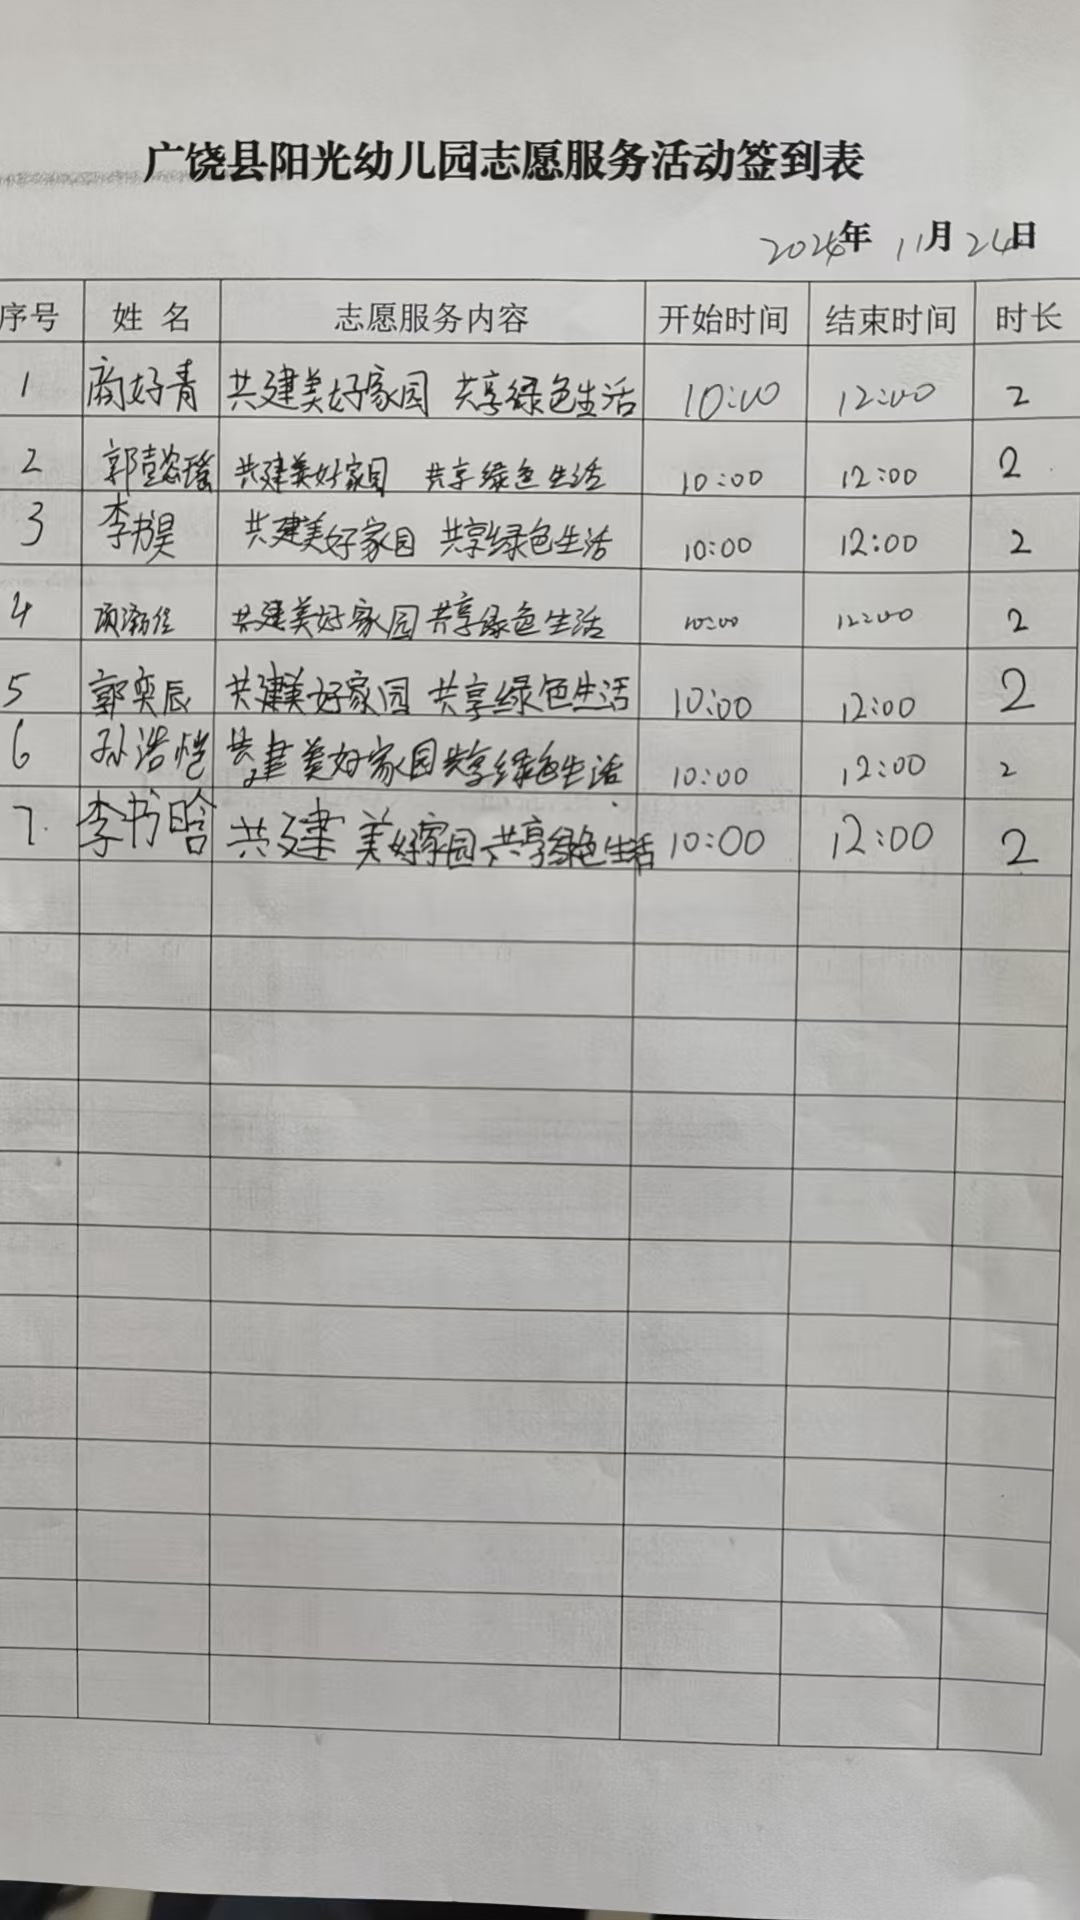 广饶县阳光幼儿园志愿服务活动签到表
2024年 11月 24日
序号 姓名 志愿服务内容 开始时间 结束时间 时长
1 商好青 共建美好家园 共享绿色生活 10:00 12:00 2
2 郭懿瑶 共建美好家园 共享绿色生活 10:00 12:00 2
3 李书昊 共建美好家园 共享绿色生活 10:00 12:00 2
4 共建美好家园 共享绿色生活 10:00 12:00 2
5 郭奕辰 共建美好家园 共享绿色生活 10:00 12:00 2
6 孙浩恺 共建美好家园共享绿色生活 10:00 12:00 2
7. 李书晗 共建美好家园,共享绿色生活 10:00 12:00 2